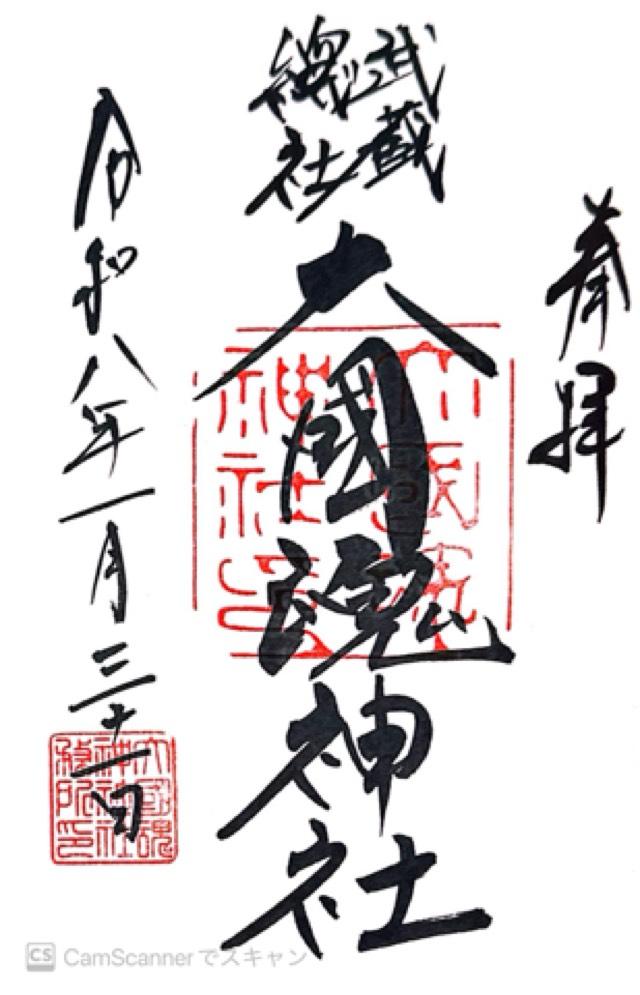 奉拝
武蔵
總社
大國魂神社
令和八年一月三十一日
大國魂
神社印
大國魂
神社社
務所印
CamScannerでスキャン